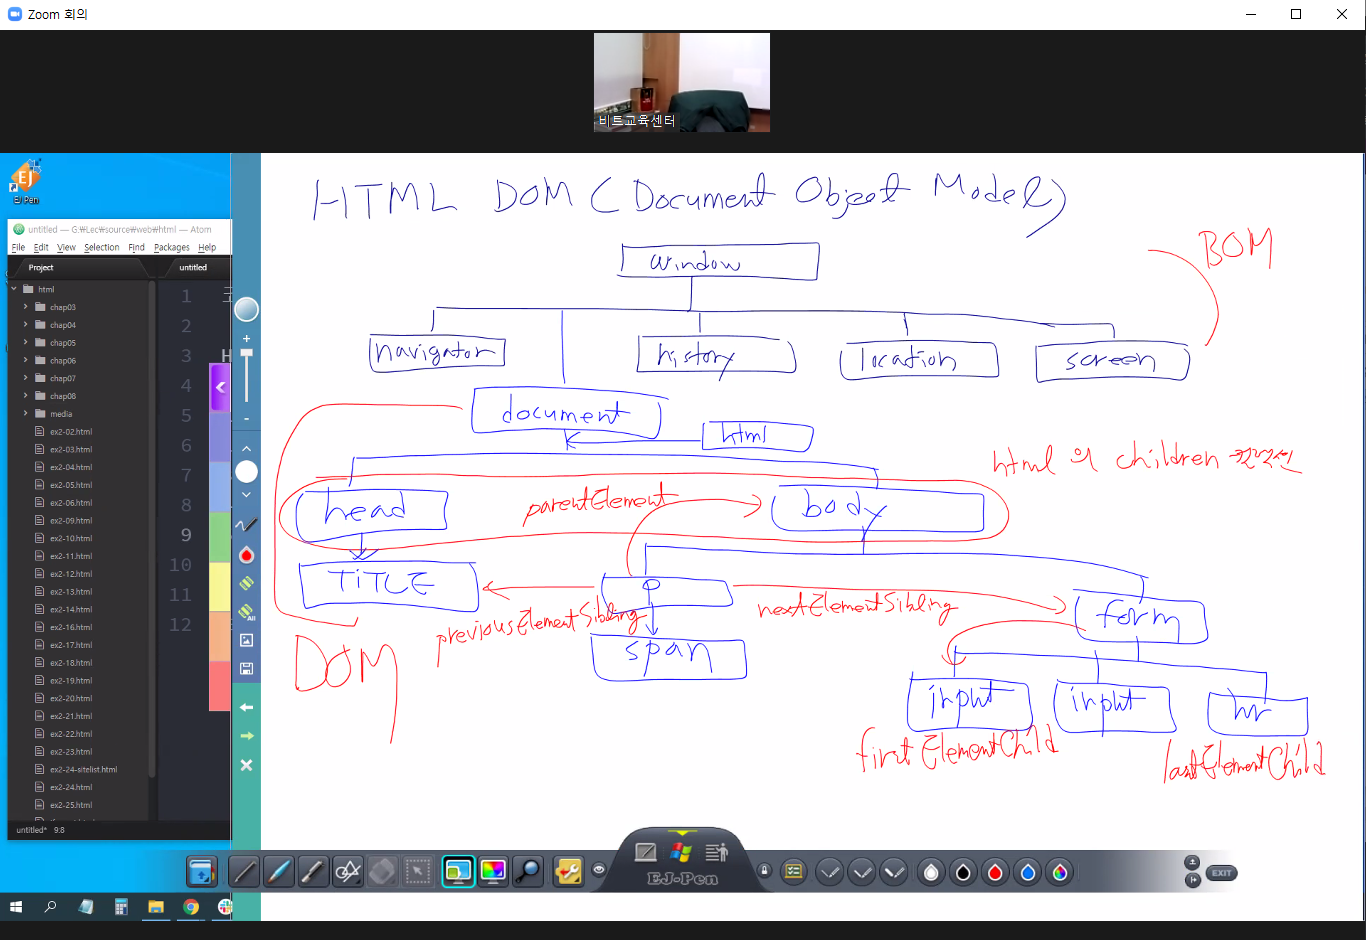 Zoom 회의
비트교육센터
EJ Pen
untitled — G:₩Lec₩source₩web₩html — Atom
File Edit View Selection Find Packages Help
Project
untitled
html
chap03
chap04
chap05
chap06
chap07
chap08
media
ex2-02.html
ex2-03.html
ex2-04.html
ex2-05.html
ex2-06.html
ex2-09.html
ex2-10.html
ex2-11.html
ex2-12.html
ex2-13.html
ex2-14.html
ex2-16.html
ex2-17.html
ex2-18.html
ex2-19.html
ex2-20.html
ex2-21.html
ex2-22.html
ex2-23.html
ex2-24-sitelist.html
ex2-24.html
ex2-25.html
untitled* 9:8
1
2
3 H
4
5
6
7
8
9
10
11
12
All
HTML DOM (Document Object Model)
BOM
window
navigator
history
location
screen
document
html
html의 children
head
parentElement
body
TITLE
p
nextElementSibling
form
previousElementSibling
span
DOM
input
input
hr
firstElementChild
lastElementChild
EJ-Pen
EXIT